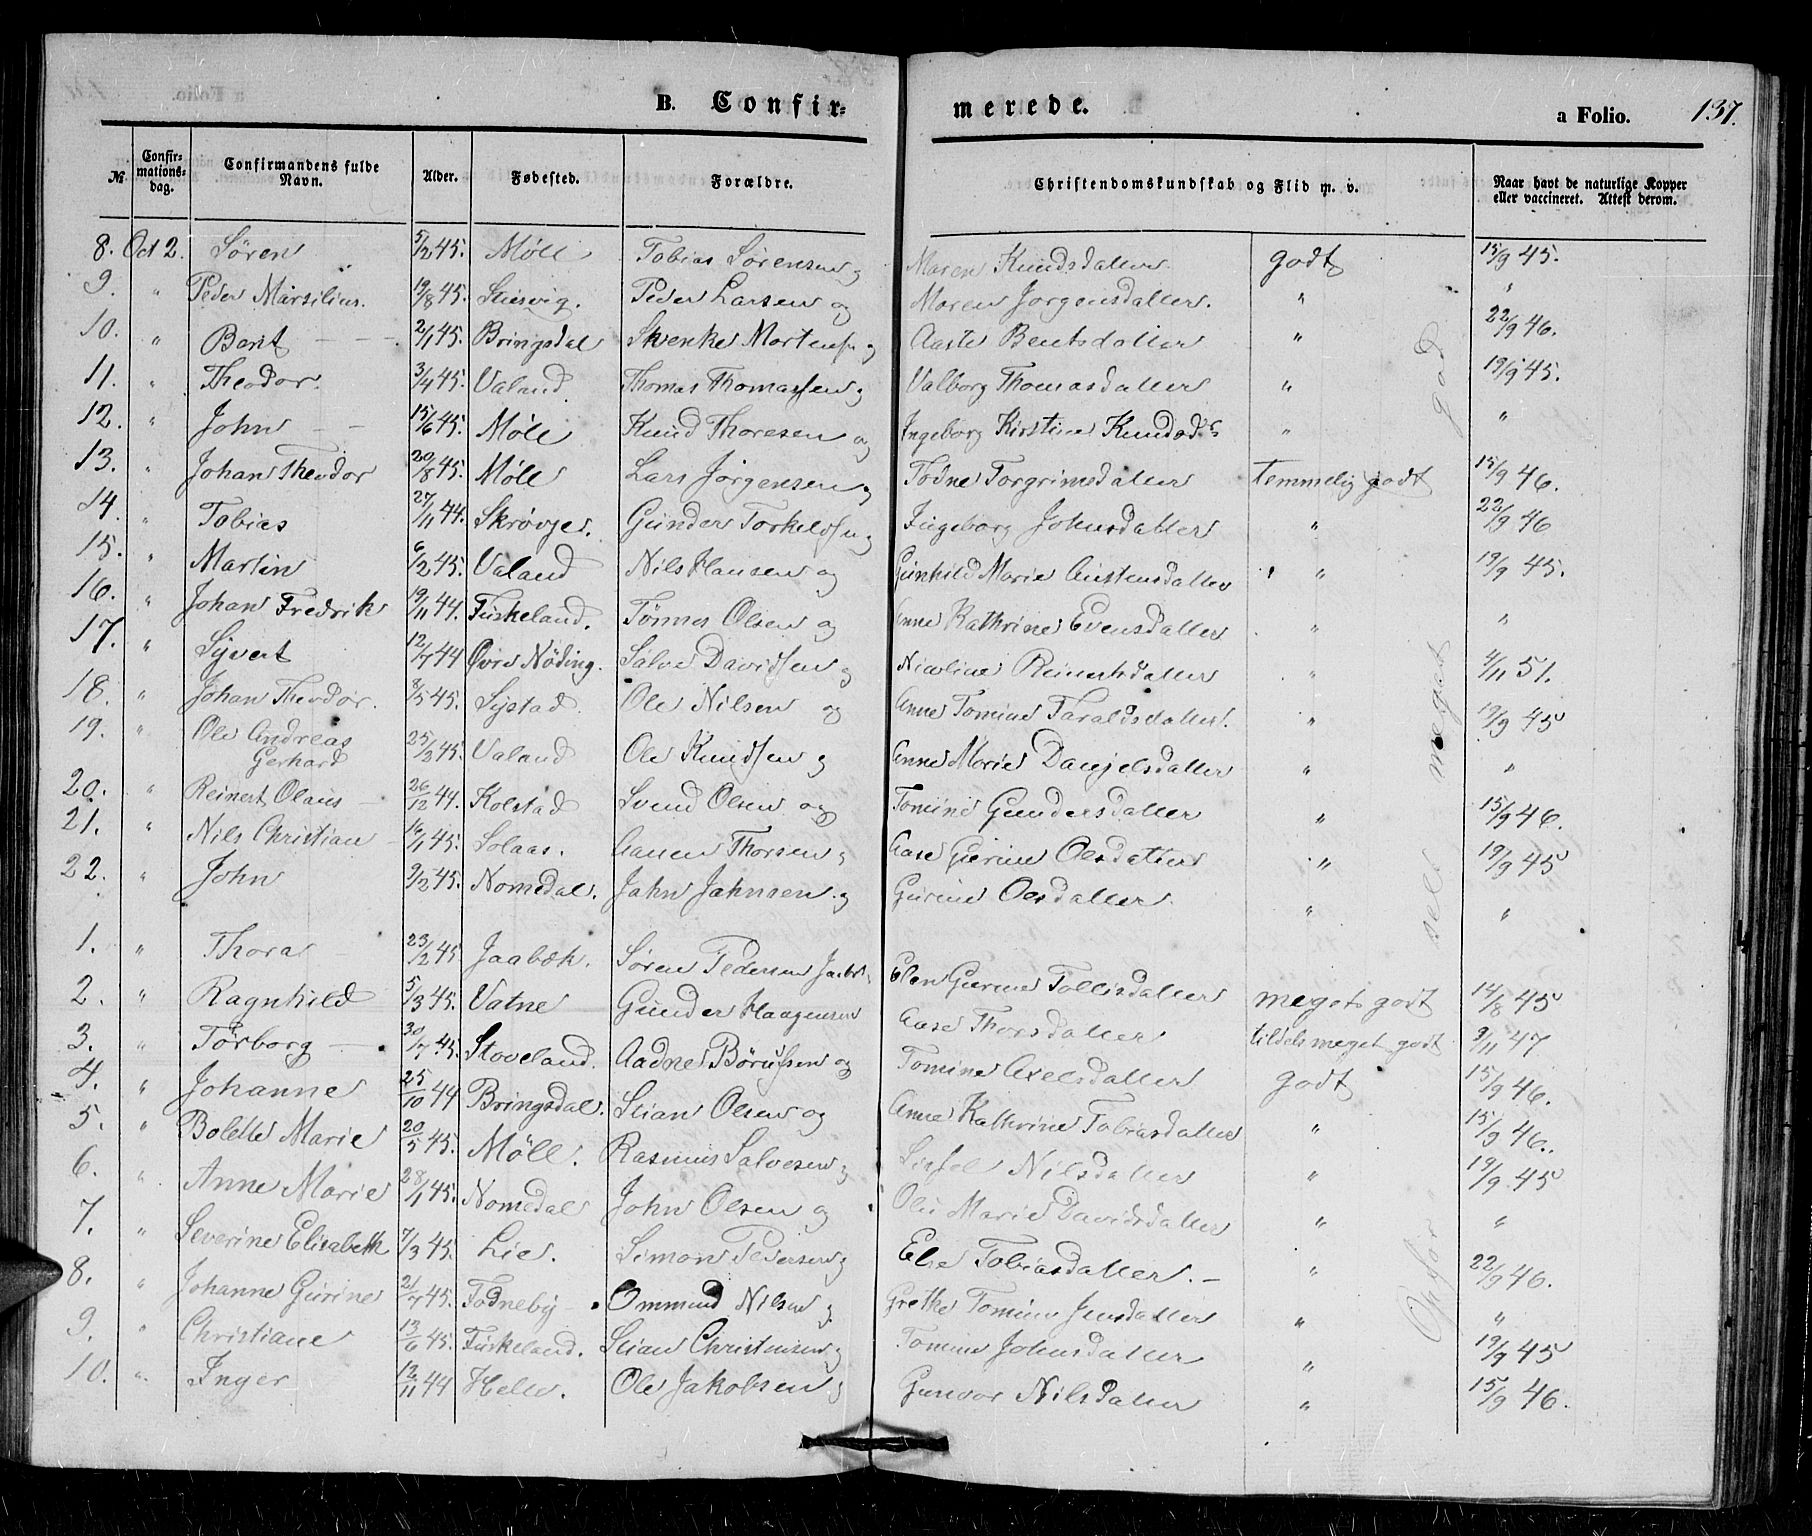 B. Confirmerede. a Folio. 137.
№ Confirmationsdag. Confirmandens fulde Navn. Alder. Fødested. Forældre. Christendomskundskab og Flid m. v. Naar havt de naturlige Kopper eller vaccineret. Attest derom.
8. Oct 2. Søren 5/2 45. Møll Tobias Sørensen og Maren Knudsdatter godt 15/9 45.
9. " Peder Marsilius. 19/8 45. Stusvig. Peder Larsen og Maren Jørgensdatter. " "
10. " Berit - - - 2/1 45. Bringsdal Skvenke Mortensen og Aaste Bentsdatter " 22/9 46.
11. " Theodor. 3/4 45. Valand. Thomas Thomassen og Valborg Thomasdatter " 19/9 45.
12. " John - - 15/6 45. Møll Knud Thoresen og Ingeborg Kirstine Knudsd. " "
13. " Johan Theodor 20/8 45. Møll Lars Jørgensen og Tødne Torgrimsdatter temmelig godt 15/9 46.
14. " Tobias 27/11 44. Skrøvje. Gunder Torkeldsen og Ingeborg Johnsdatter " 22/9 46
15. " Martin 6/2 45. Valand Nils Hansen og Gunhild Marie Austensdatter " 19/9 45.
16. " Johan Fredrik 19/11 44. Fuskeland. Tønnes Olsen og Anne Kathrine Evensdatter " "
17. " Syvert 12/7 44 Øvre Nøding. Salve Davidsen og Nicoline Reinertsdatter " 4/11 51.
18. " Johan Theodor. 8/5 45. Systad. Ole Nilsen og Anne Tomine Taraldsdatter. " 19/9 45
19. " Ole Andreas Gerhard 25/2 45. Valand Ole Knudsen og Anne Marie Danjelsdatter " "
20. " Reinert Olaus 26/12 44. Kolstad Svend Olsen og Tomine Gundersdatter " 15/9 46.
21. " Nils Christian 16/1 45. Solaas. Aanen Thorsen og Aase Gurine Olsdatter " 19/9 45
22. " John 9/2 45. Nomedal. Jahn Jahnsen og Gurine Olsdatter " "
1. " Thora 23/2 45. Jaabæk. Søren Pedersen Elen Gurine Tollisdatter meget godt 14/8 45
2. " Ragnhild 5/3 45. Vatne Gunder Haagensen Aase Thorsdatter tildels meget godt 9/11 47
3. " Tørborg - 30/7 45. Stoveland. Aadne Børufsen og Tomine Axelsdatter godt 15/9 46.
4. " Johanne 25/10 44 Bringsdal. Stian Olsen og Anne Kathrine Tobiasdatter " 15/9 46.
5. " Bolette Marie 20/5 45. Møll. Rasmus Salvesen og Sissel Nilsdatter " 19/9 45
6. " Anne Marie 28/1 45. Nomedal John Olsen og Marie Davidsdatter " "
7. " Severine Elisabeth 7/3 45. Lie. Simon Pedersen og Else Tobiasdatter. - " 22/9 46.
8. " Johanne Gurine 21/7 45. Todneby - Ommund Nilsen og Grethe Tomine Jensdatter " "
9. " Christiane 13/6 45. Fuskeland. Stian Christensen og Tomine Johnsdatter " 19/9 45
10. " Inger 12/11 44 Helle. Ole Jakobsen og Gunvor Nilsdatter " 15/9 46.
meget god